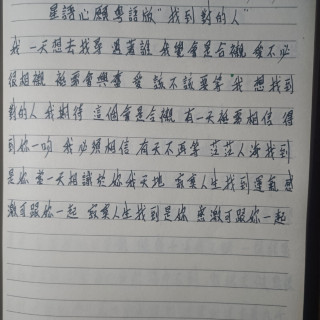 星語心願粵語版"找到對的人"
我 一天想去找尋 遇著誰 我覺會是合襯 愛不必
很相襯 能夠會興奮 愛 該不該要等 "我 想找到
對的人 我期待 這個會是合襯 有一天能夠相信 得
到你一吻 我必須相信 有天不再等 茫茫人海找到
是你 某一天相識於你我天地 寂寞人生找到運氣 感
激可跟你一起 寂寞人生找到是你 感激可跟你一起